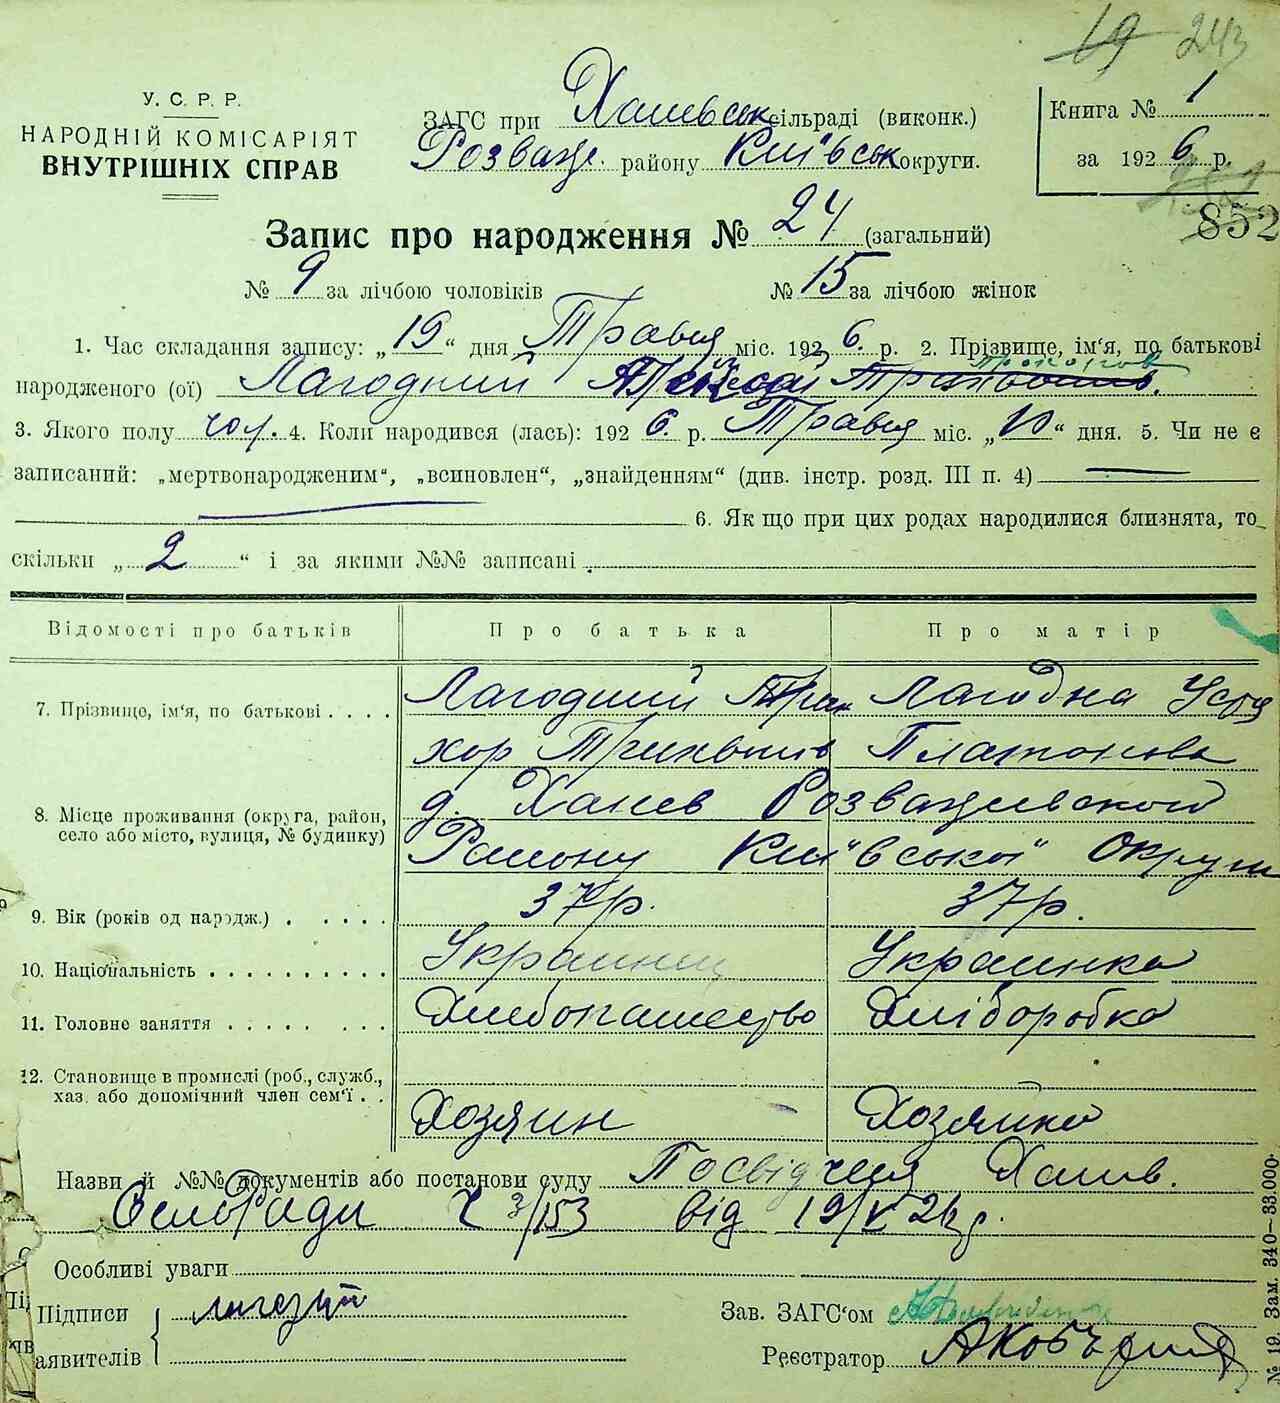 19 243
У. С. Р. Р.
НАРОДНІЙ КОМІСАРІЯТ
ВНУТРІШНІХ СПРАВ
ЗАГС при Ханівськ сільраді (виконк.)
Розваж. району Київськ округи.
Книга № 1
за 1926 р.
852
Запис про народження № 24 (загальний)
№ 9 за лічбою чоловіків № 15 за лічбою жінок
1. Час складання запису: „19“ дня Травня міс. 1926. р. 2. Прізвище, ім'я, по батькові
народженого (ої) Лагодний
3. Якого полу чол. 4. Коли народився (лась): 1926. р. Травня міс. „10“ дня. 5. Чи не є
записаний: „мертвонародженим“, „всиновлен“, „знайденням“ (див. інстр. розд. III п. 4)
6. Як що при цих родах народилися близнята, то
скільки „2“ і за якими №№ записані
Відомості про батьків Про батька Про матір
7. Прізвище, ім'я, по батькові . . . . Лагодний Лагодна
Платонова
8. Місце проживання (округа, район, село або місто, вулиця, № будинку) д. Ханев Розважевской
Району Київської Округи
9. Вік (років од народж.) . . . . . 37р. 37р.
10. Національність . . . . . . . . . . Украинец Украинка
11. Головне заняття . . . . . . . . Хлебопашество Хліборобка
12. Становище в промислі (роб., служб., хаз. або допомічний член сем'ї . . Хозяин Хозяйка
Назви й №№ документів або постанови суду Посвідчення Ханів.
СельРади Ч 3/153 від 19/V 26р.
Особливі уваги
Підписи
заявителів
Зав. ЗАГС'ом
Реєстратор
№ 19 Зам. 340—33.000